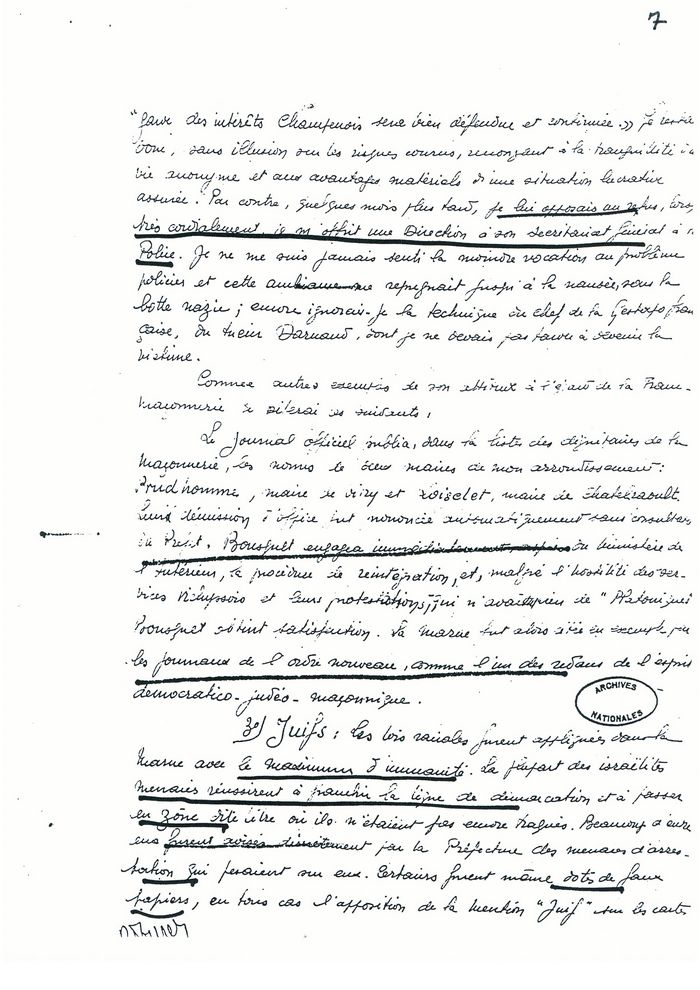 7
"garde des intérêts Champenois sera bien défendue et continuée." Je rentrai
donc, sans illusion sur les risques courus, renonçant à la tranquillité d'une
vie anonyme et aux avantages matériels d'une situation lucrative
assurée. Par contre, quelques mois plus tard, je lui opposais un refus, lorsque
très cordialement, il m'offrit une Direction à son secrétariat général à la
Police. Je ne me suis jamais senti la moindre vocation au problème
policier et cette me répugnait jusqu'à la nausée, sous la
botte nazie ; encore ignorais-je la technique du chef de la Gestapo fran
çaise, du Darnand, dont je ne devais pas tarder à devenir la
victime.
Comme autres exemples de son attitude à l'égard de la Franc-
maçonnerie je citerai les suivants :
Le Journal officiel publia, dans la liste des dignitaires de la
Maçonnerie, les noms de deux maires de mon arrondissement :
Prud'hommes, maire de Vitry et Loiselet, maire de
Leur démission d'office fut prononcée automatiquement sans consultation
du Préfet. Bousquet engagea immédiatement auprès du ministère de
l'Intérieur, la procédure de réintégration, et, malgré l'hostilité des ser-
vices Vichyssois et leurs protestations, qui n'avaient rien de "Platonique"
Bousquet obtint satisfaction. La Marne fut alors citée en exemple par
les journaux de l'ordre nouveau, comme l'un des redans de l'esprit
démocratico-judéo-maçonnique.
ARCHIVES
NATIONALES
3°) Juifs : Les lois raciales furent appliquées dans la
Marne avec le maximum d'humanité. La plupart des israélites
menacés réussirent à franchir la ligne de démarcation et à passer
en zône dite libre où ils n'étaient pas encore traqués. Beaucoup d'entre
eux furent avisés discrètement par la Préfecture des menaces d'arres-
tation qui pesaient sur eux. Certains furent même dotés de faux
papiers, en tous cas l'apposition de la mention "Juif" sur les cartes